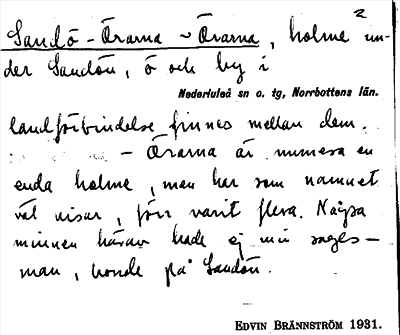 2
Sandö-Örarna ~ Örarna, holme un-
der Sandön, ö och by i
Nederluleå sn o. tg, Norrbottens län.
landförbindelse finnes mellan dem.
– Örarna är numera en
enda holme, men har som namnet
väl visar, förr varit flera. Några
minnen härav hade ej min sages-
man, bonde på Sandön.
EDVIN BRÄNNSTRÖM 1931.